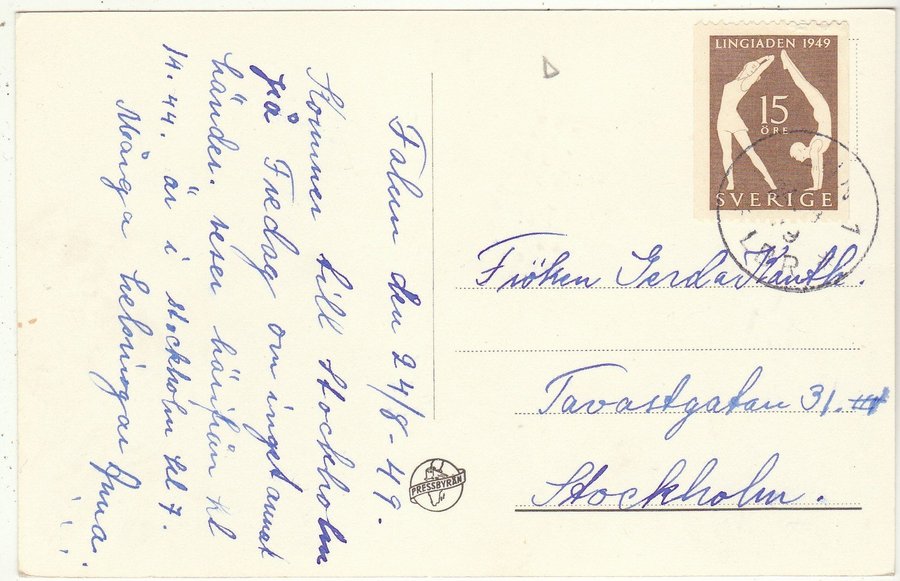 Falun den 24/8-49.
Kommer till Stockholm
på Fredag om inget annat
händer. reser härifrån kl
14.44. är i Stockholm kl 7.
Många hälsningar Anna.
LINGIADEN 1949
15
ÖRE
SVERIGE
Fröken Gerda
Tavastgatan 31. III
Stockholm.
PRESSBYRÅN